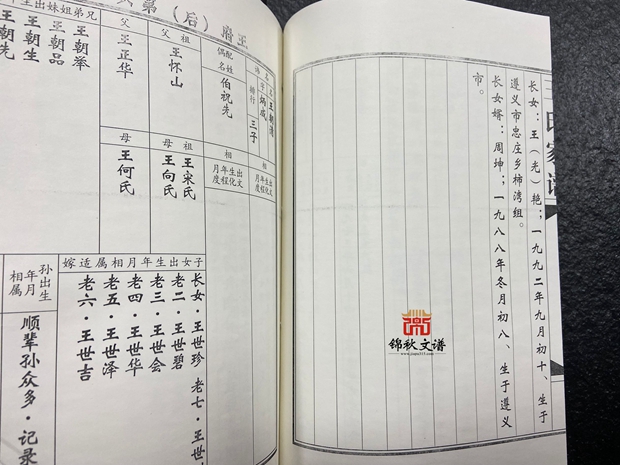 王氏家谱
长女：王（光）艳；一九九二年九月初十、生于
遵义市忠庄乡柿湾组。
长女婿：周坤；一九八八年冬月初八、生于遵义
市。
锦秋文谱
www.jiapu315.com
王府（后）第
王朝清
字
炳成
排行
三子
配偶姓名
伯祝先
出生年月
文化程度
相
出生年月
文化程度
相
祖父
王怀山
母
王宋氏
王向氏
父
王正华
母
王何氏
兄弟姐妹出生
王朝举
王朝品
王朝生
王朝先
子女出生年月相属适嫁
长女·王世珍
老七·王世
老二·王世碧
老三·王世会
老四·王世华
老五·王世泽
老六·王世吉
孙出生年月相属
顺辈孙众多·记录